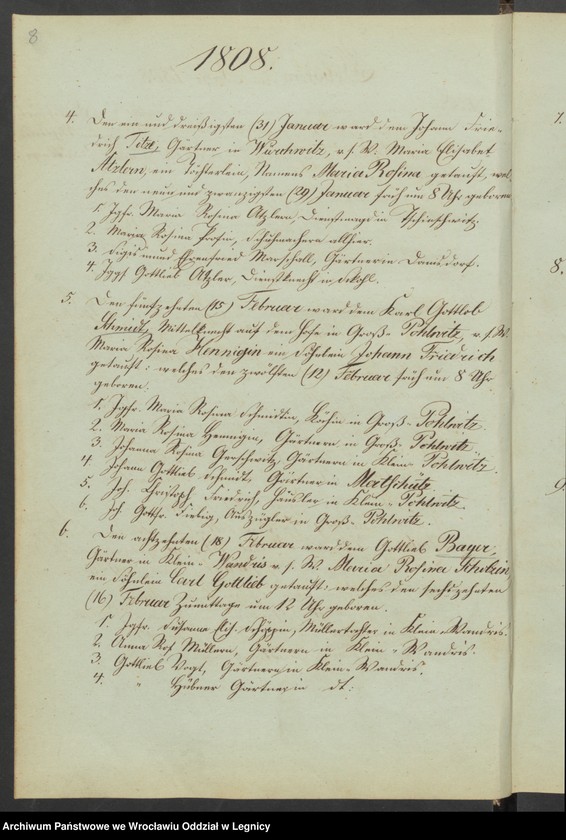 8
1808.
4. Den ein und dreißigsten (31) Januar ward dem Johann Frie-
drich Titze, Gärtner in Wurchwitz, v. s. W. Maria Elisabet
Atzlern, ein Töchterlein, Namens Maria Rosina getauft, wel-
ches den neun und zwanzigsten (29) Januar früh um 8 Uhr geboren
1. Jgfr. Maria Rosina Atzlern, Dienstmagd in Tschinschwitz.
2. Maria Rosina Schuhmachern allhier.
3. Sigismund Ehrenfried Marschall, Gärtner in Damsdorf.
4. Jggs. Gottlieb Atzler, Dienstknecht in
5. Den fünfzehnten (15) Februar ward dem Karl Gottlob
Schmidt, Mittelknecht auf dem Hofe in Groß-Pohlwitz, v. s. W.
Maria Rosina Hennigin ein Söhnlein Johann Friedrich
getauft: welches den zwölften (12) Februar früh um 8 Uhr
geboren.
1. Jgfr. Maria Rosina Schmidtin, Köchin in Groß-Pohlwitz
2. Maria Rosina Hennigin, Gärtnern in Groß-Pohlwitz
3. Johanna Rosina Gärtnern in Klein-Pohlwitz.
4. Johann Gottlieb Schmidt, Gärtner in Mertschütz
5. Joh. Christoph Friedrich, Häusler in Klein-Pohlwitz.
6. Joh. Gottfr. Fiebig, Auszügler in Groß-Pohlwitz.
6. Den achtzehnten (18) Februar ward dem Gottlieb Bayer,
Gärtner in Klein-Wandris v. s. W. Maria Rosina Scholzin,
ein Söhnlein Carl Gottlieb getauft: welches den sechszehnten
(16) Februar zu Mittage um 12 Uhr geboren.
1. Jgfr. Susanna Elis. Müllertochter in Klein-Wandris.
2. Anna Ros. Müllern, Gärtnern in Klein-Wandris.
3. Gottlieb Vogt, Gärtner in Klein-Wandris.
4. " Hübner Gärtner in dt:
7.
8.
9
Archiwum Państwowe we Wrocławiu Oddział w Legnicy